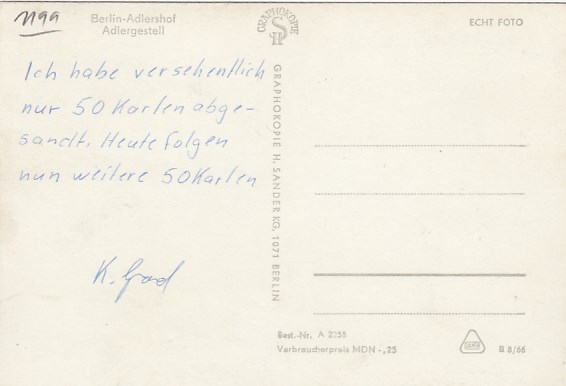 1199
Berlin-Adlershof
Adlergestell
Ich habe versehentlich
nur 50 Karten abge-
sandt. Heute folgen
nun weitere 50 Karten
K. Grod
GRAPHOKOPIE
GRAPHOKOPIE H. SANDER KG, 1071 BERLIN
ECHT FOTO
Best.-Nr. A 2255
Verbraucherpreis MDN -,25
B 8/66